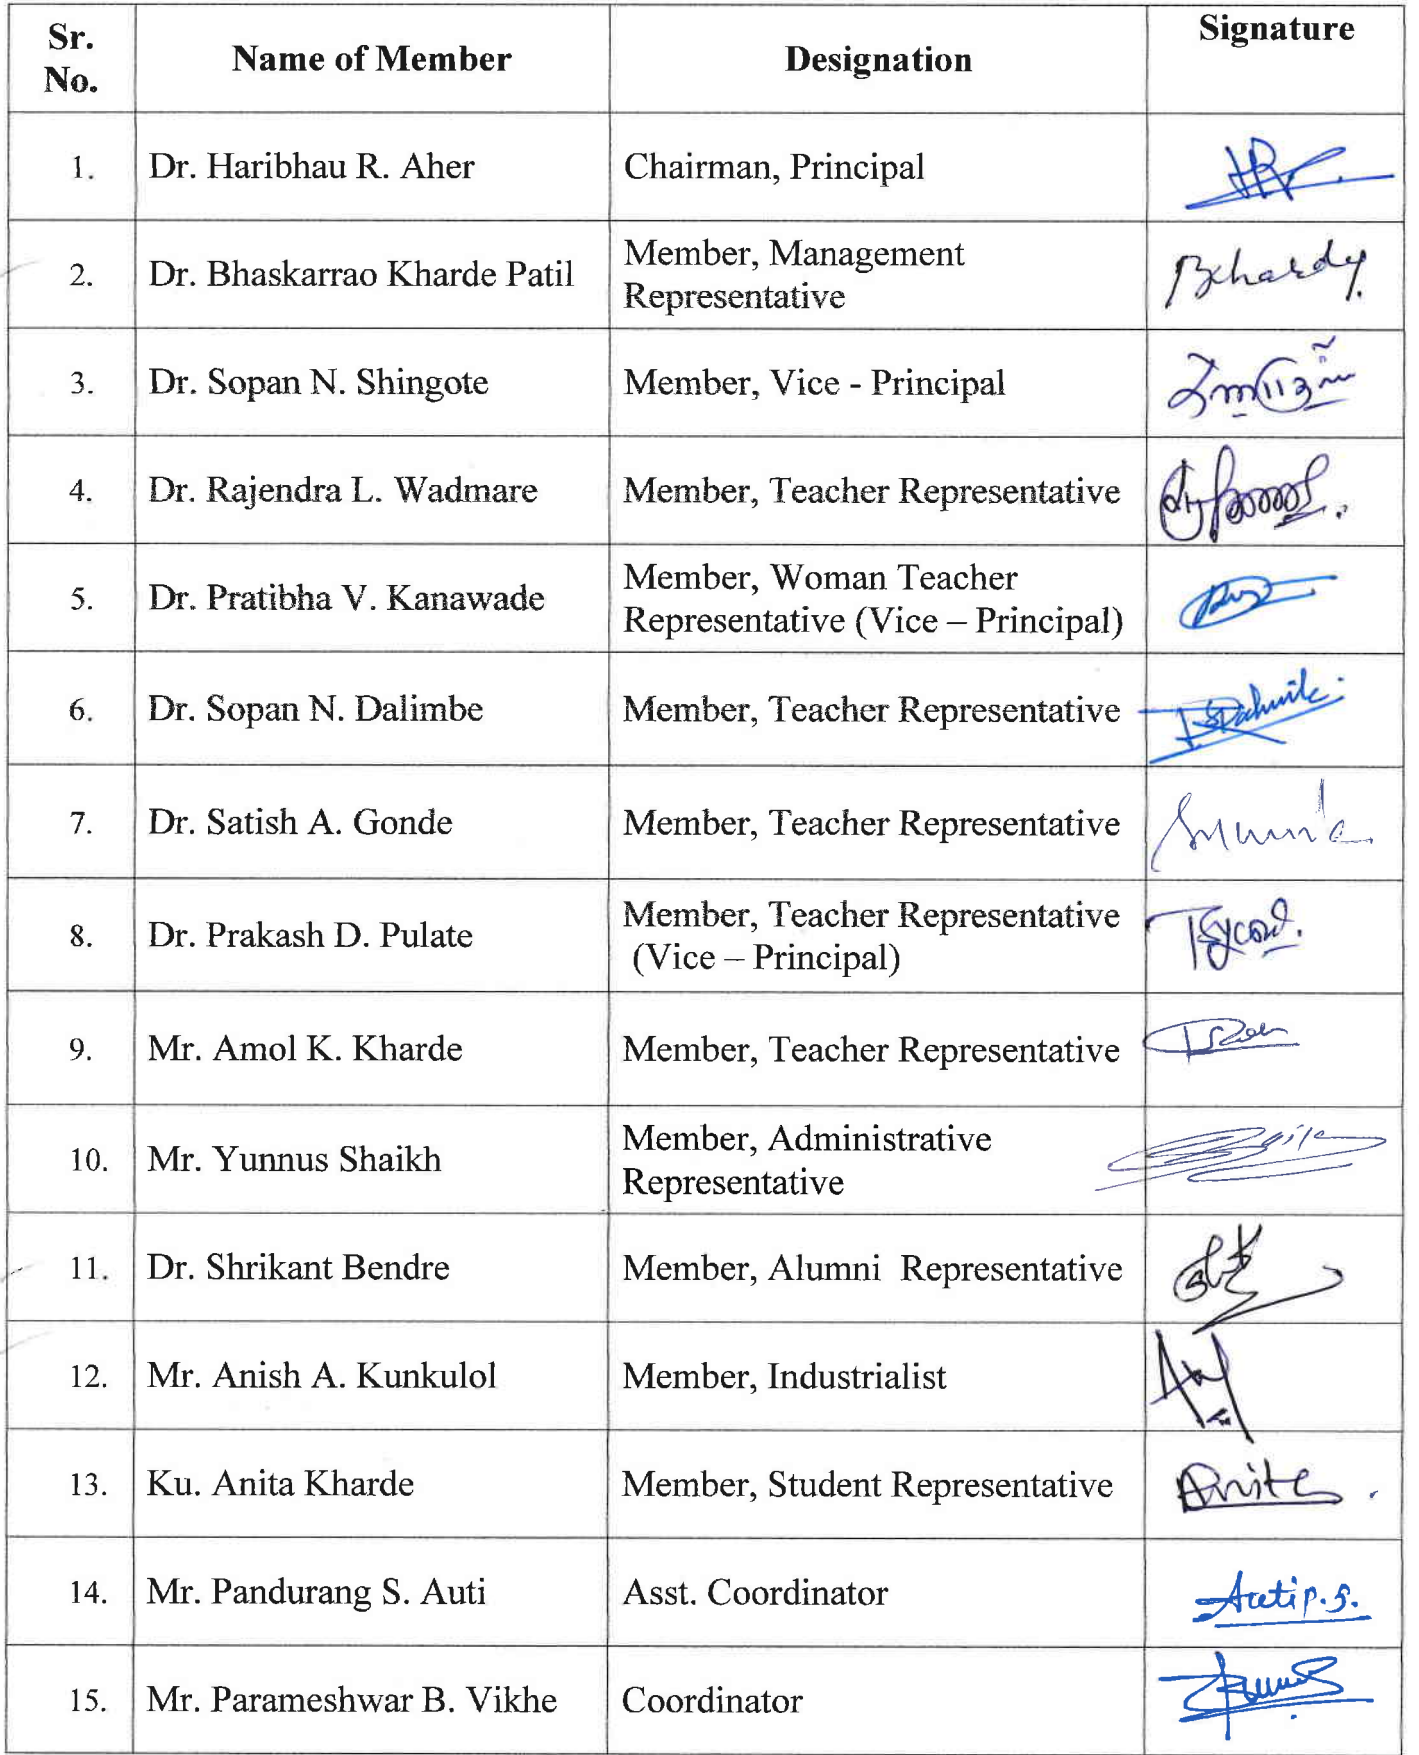 Sr. No. Name of Member Designation Signature
1. Dr. Haribhau R. Aher Chairman, Principal
2. Dr. Bhaskarrao Kharde Patil Member, Management Representative
3. Dr. Sopan N. Shingote Member, Vice - Principal
4. Dr. Rajendra L. Wadmare Member, Teacher Representative
5. Dr. Pratibha V. Kanawade Member, Woman Teacher Representative (Vice – Principal)
6. Dr. Sopan N. Dalimbe Member, Teacher Representative
7. Dr. Satish A. Gonde Member, Teacher Representative
8. Dr. Prakash D. Pulate Member, Teacher Representative (Vice – Principal)
9. Mr. Amol K. Kharde Member, Teacher Representative
10. Mr. Yunnus Shaikh Member, Administrative Representative
11. Dr. Shrikant Bendre Member, Alumni Representative
12. Mr. Anish A. Kunkulol Member, Industrialist
13. Ku. Anita Kharde Member, Student Representative
14. Mr. Pandurang S. Auti Asst. Coordinator Auti p.s.
15. Mr. Parameshwar B. Vikhe Coordinator